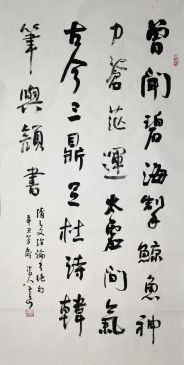 曾聞碧海掣鯨魚神
力蒼茫運太虛間氣
古今三鼎足杜詩韓
筆與顏書
清王文治論書絕句
辛丑